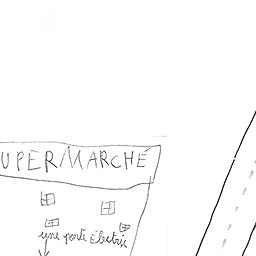 UPERMARCHÉ
une porte électric